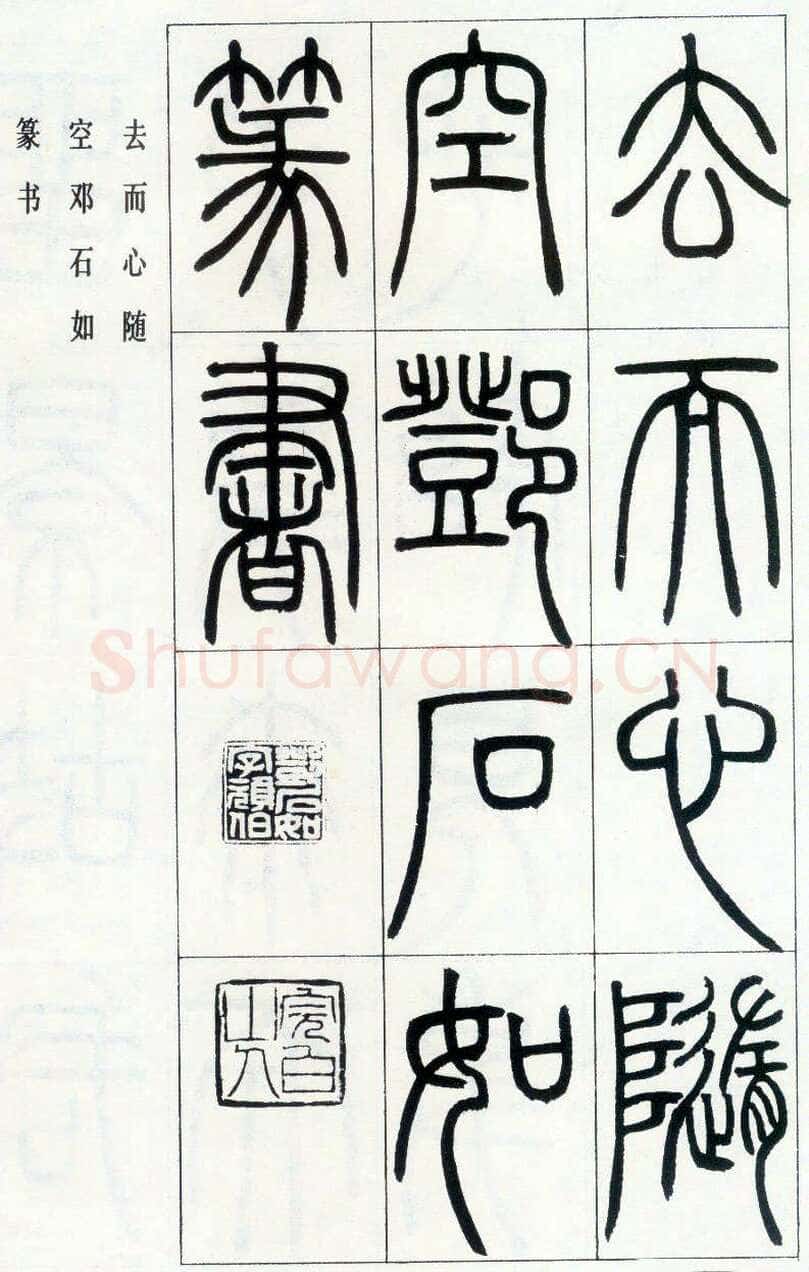 去而心隨
空鄧石如
篆書
鄧石如字頑伯
完白山人
去而心随
空邓石如
篆书
Shufawang.CN